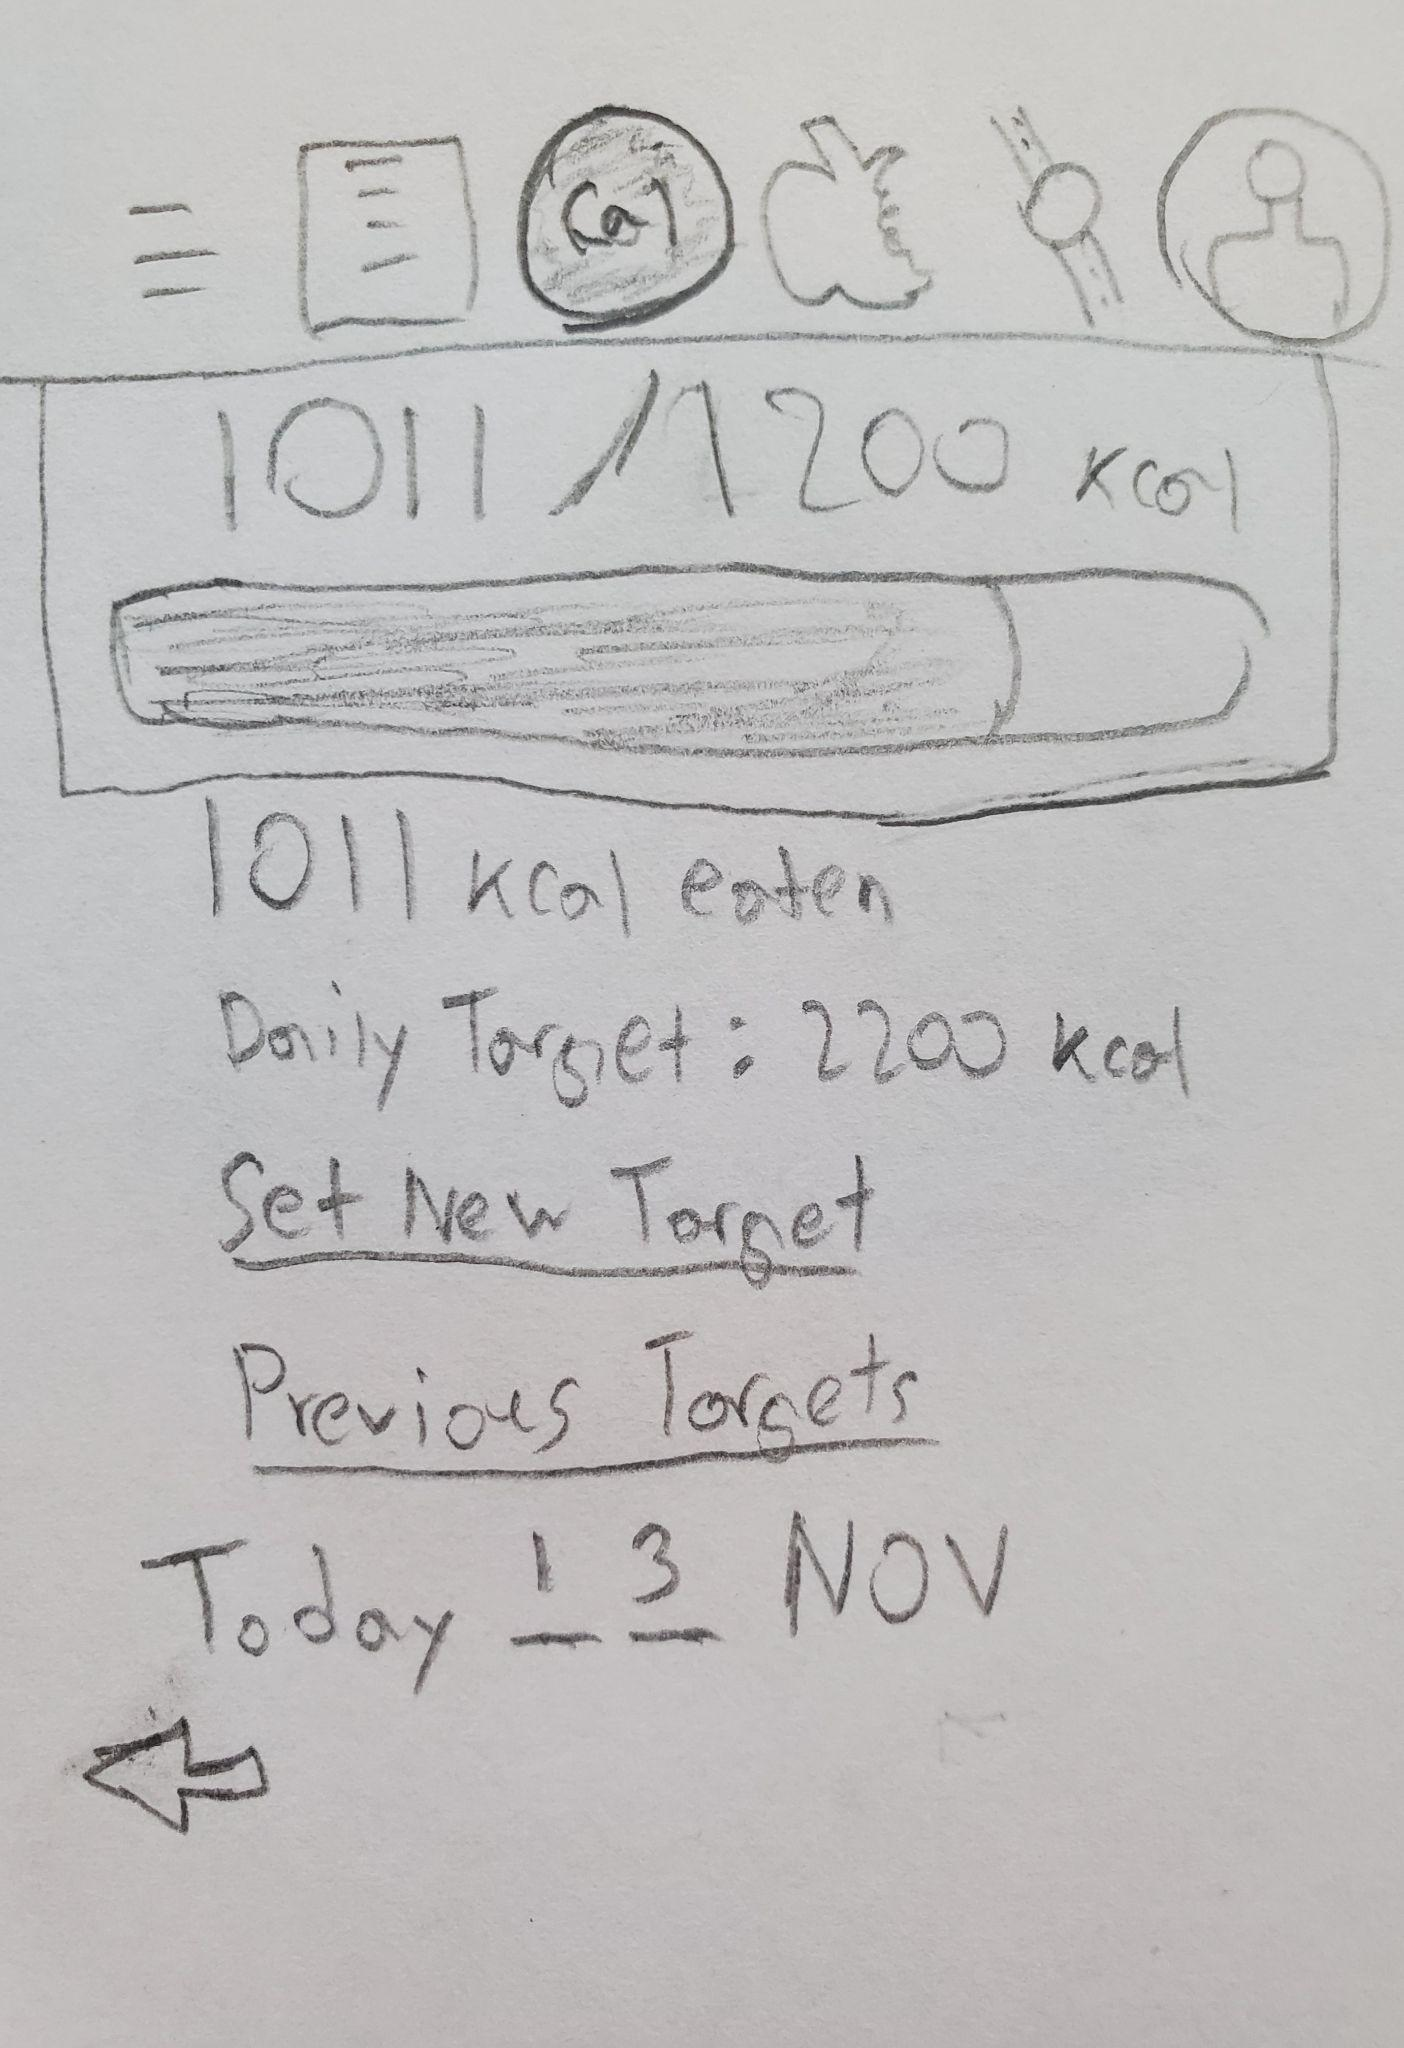 Cal
1011/1200 kcal
1011 kcal eaten
Daily Target: 2200 kcal
Set New Target
Previous Targets
Today 13 NOV